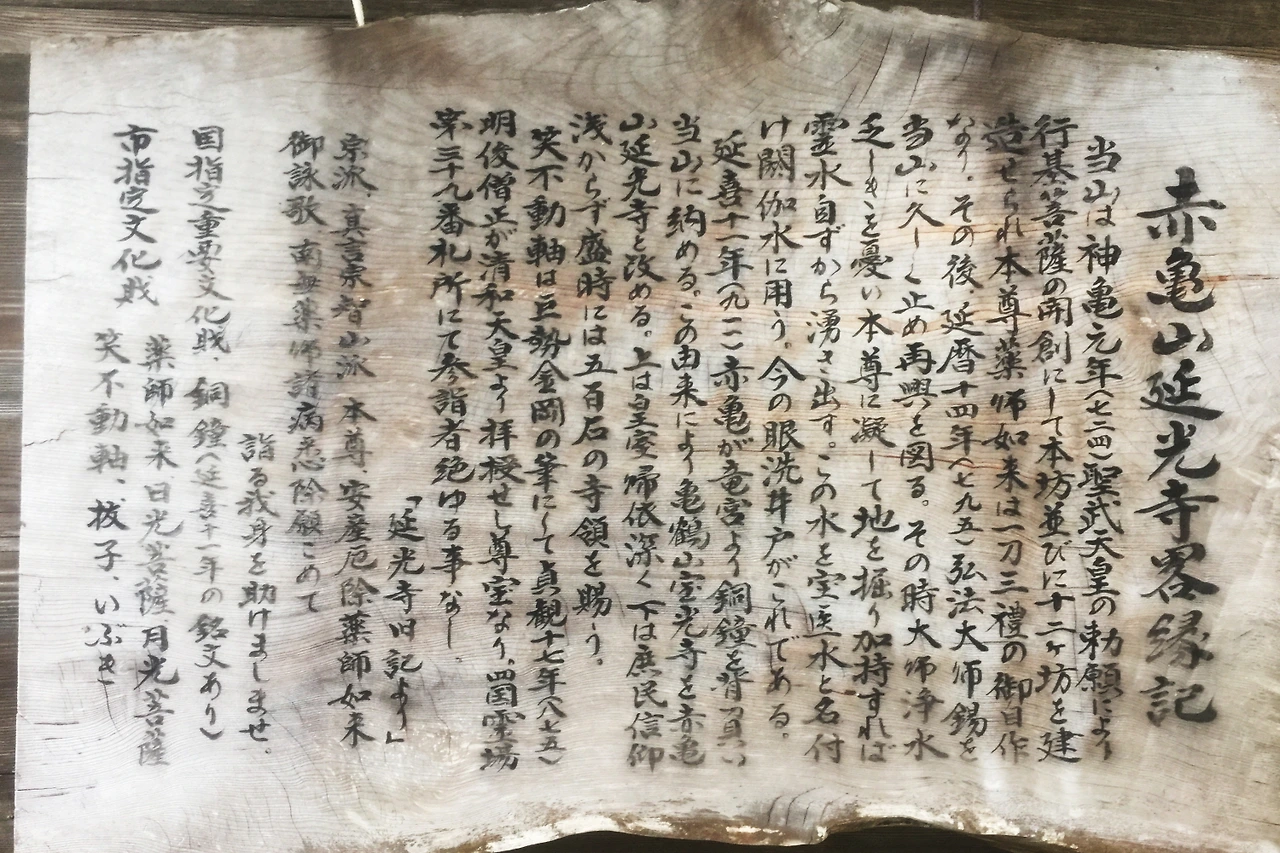 赤亀山延光寺畧縁記
当山は神亀元年(七二四)聖武天皇の勅願により
行基菩薩の開創にして本坊並びに十二ヶ坊を建
造せられ本尊薬師如来は一刀三禮の御自作
なり。その後、延暦十四年(七九五)弘法大師錫を
当山に久しく止め再興を図る。その時大師浄水
乏しきを憂い本尊に凝して地を掘り加持すれば
霊水自ずから湧き出す。この水を宝医水と名付
け閼伽水に用う。今の眼洗井戸がこれである。
延喜十一年(九一一)赤亀が竜宮より銅鐘を背買い
当山に納める。この由来により亀鶴山宝光寺を赤亀
山延光寺と改める。上は皇室帰依深く下は庶民信仰
浅からず盛時には五百石の寺領を賜う。
笑不動軸は巨勢金岡の筆にして貞観十七年(八七五)
明俊僧正が清和天皇より拝授せし尊宝なり、四国霊場
第三十九番札所にて参詣者絶ゆる事なし。
「延光寺旧記より」
宗派、真言宗智山派 本尊、安産厄除薬師如来
御詠歌 南無薬師諸病悉除の願こめて
詣る我身を助けましませ。
国指定重要文化財、銅鐘(延喜十一年の銘文あり)
薬師如来、日光菩薩、月光菩薩
市指定文化財 笑不動軸、抜子、いぶき